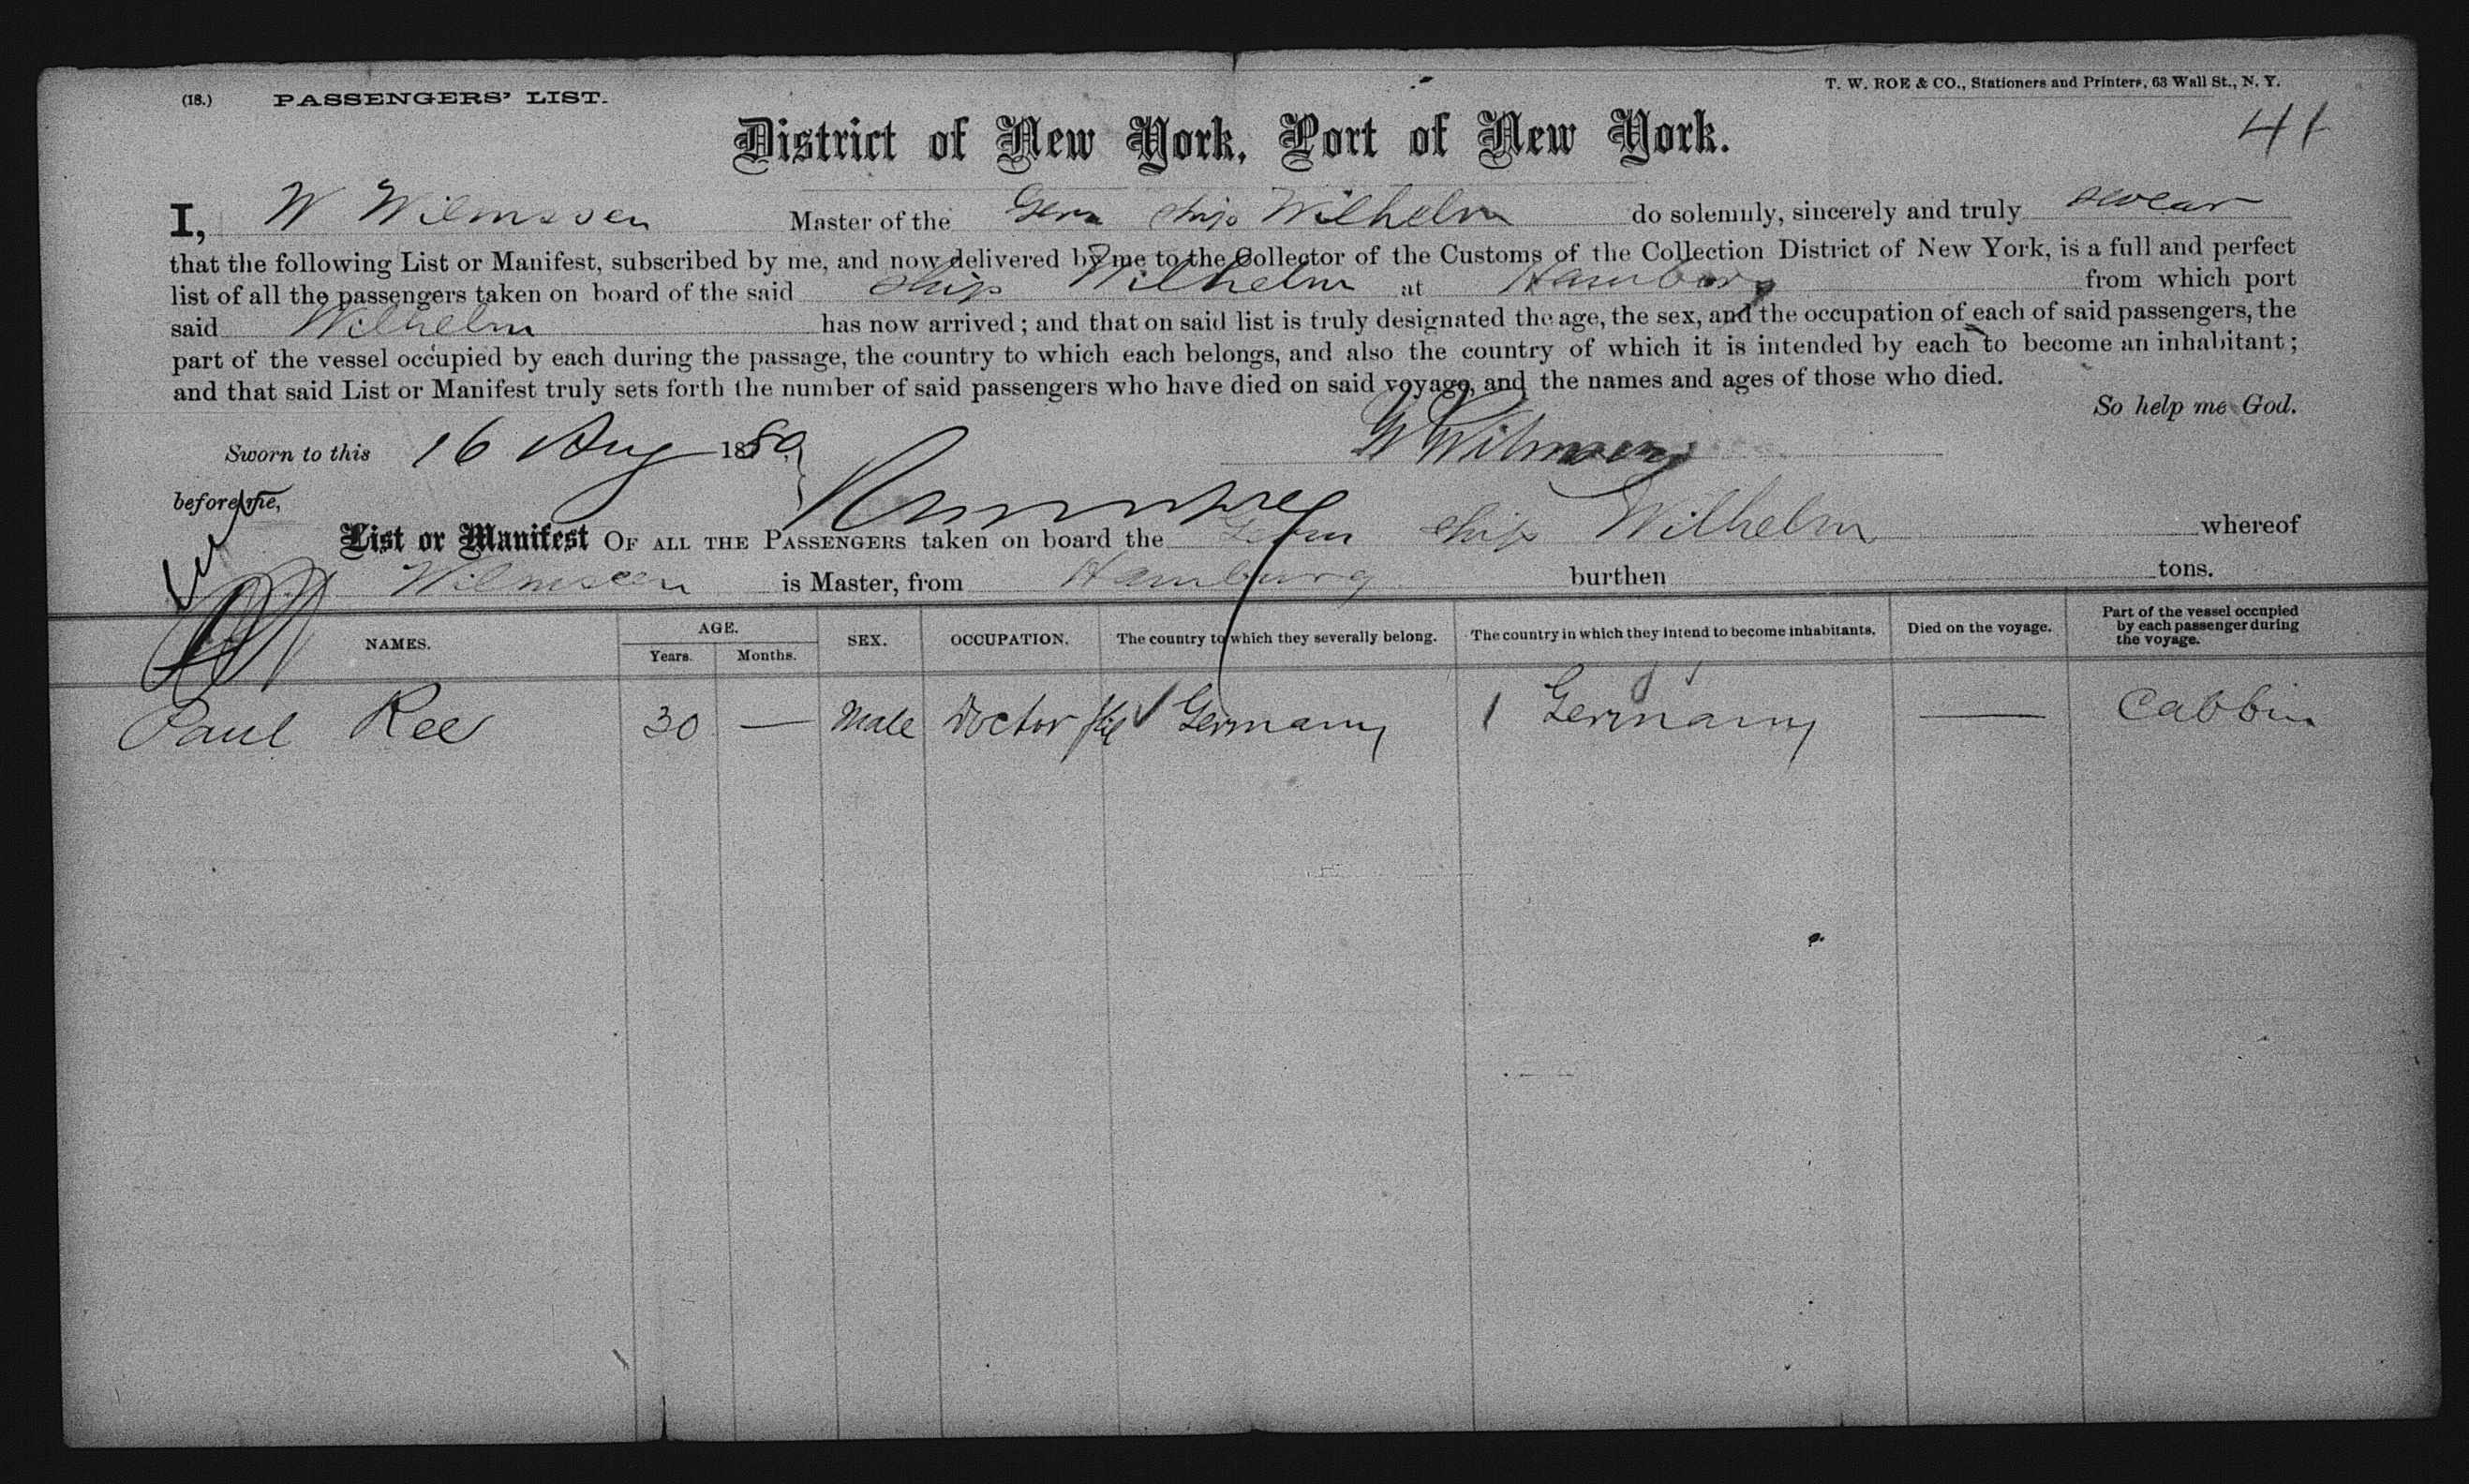 (18.) PASSENGERS' LIST.
T. W. ROE & CO., Stationers and Printers, 63 Wall St., N. Y.
41
District of New York, Port of New York.
I, W Wilmssen Master of the Germ ship Wilhelm do solemnly, sincerely and truly swear
that the following List or Manifest, subscribed by me, and now delivered by me to the Collector of the Customs of the Collection District of New York, is a full and perfect
list of all the passengers taken on board of the said ship Wilhelm at Hamburg from which port
said Wilhelm has now arrived; and that on said list is truly designated the age, the sex, and the occupation of each of said passengers, the
part of the vessel occupied by each during the passage, the country to which each belongs, and also the country of which it is intended by each to become an inhabitant;
and that said List or Manifest truly sets forth the number of said passengers who have died on said voyage, and the names and ages of those who died.
So help me God.
Sworn to this 16 Aug 1880, W Wilmssen
before me,
List or Manifest OF ALL THE PASSENGERS taken on board the Germ ship Wilhelm whereof
Wilmssen is Master, from Hamburg burthen tons.
NAMES. AGE. Years. Months. SEX. OCCUPATION. The country to which they severally belong. The country in which they intend to become inhabitants. Died on the voyage. Part of the vessel occupied by each passenger during the voyage.
Paul Ree 30 — Male Doctor phil 1 Germany 1 Germany — Cabbin